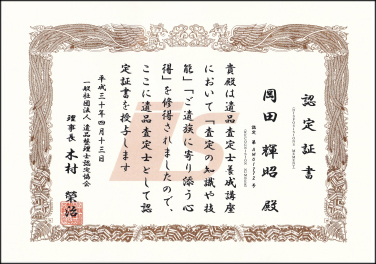 認定証書
岡田輝昭 殿
貴殿は遺品査定士養成講座
において「査定の知識や技
能」「ご遺族に寄り添う心
得」を修得されましたので、
ここに遺品査定士として認
定証書を授与します
平成三十年四月十三日
一般社団法人 遺品整理士認定協会
理事長 木村 榮治
is